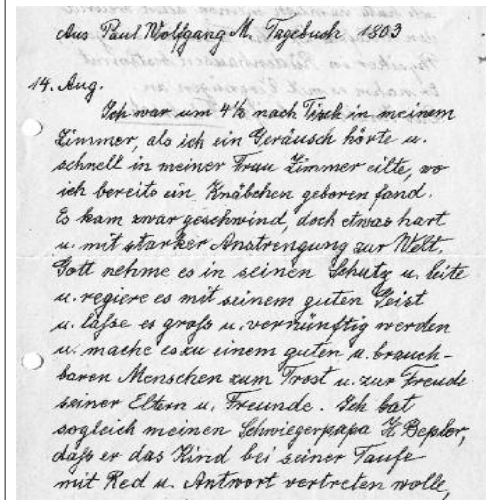 Aus Paul Wolfgang M. Tagebuch 1803
14. Aug.
Ich war um 4½ nach Tisch in meinem
Zimmer, als ich ein Geräusch hörte u.
schnell in meiner Frau Zimmer eilte, wo
ich bereits ein Knäbchen geboren fand.
Es kam zwar geschwind, doch etwas hart
u. mit starker Anstrengung zur Welt,
Gott nehme es in seinen Schutz u. leite
u. regiere es mit seinem guten Geist
u. lasse es groß u. vernünftig werden
u. mache es zu einem guten u. brauch-
baren Menschen zum Trost u. zur Freude
seiner Eltern u. Freunde. Ich bat
sogleich meinen Schwiegerpapa H.
daß er das Kind bei seiner Taufe
mit Red u. Antwort vertreten wolle,